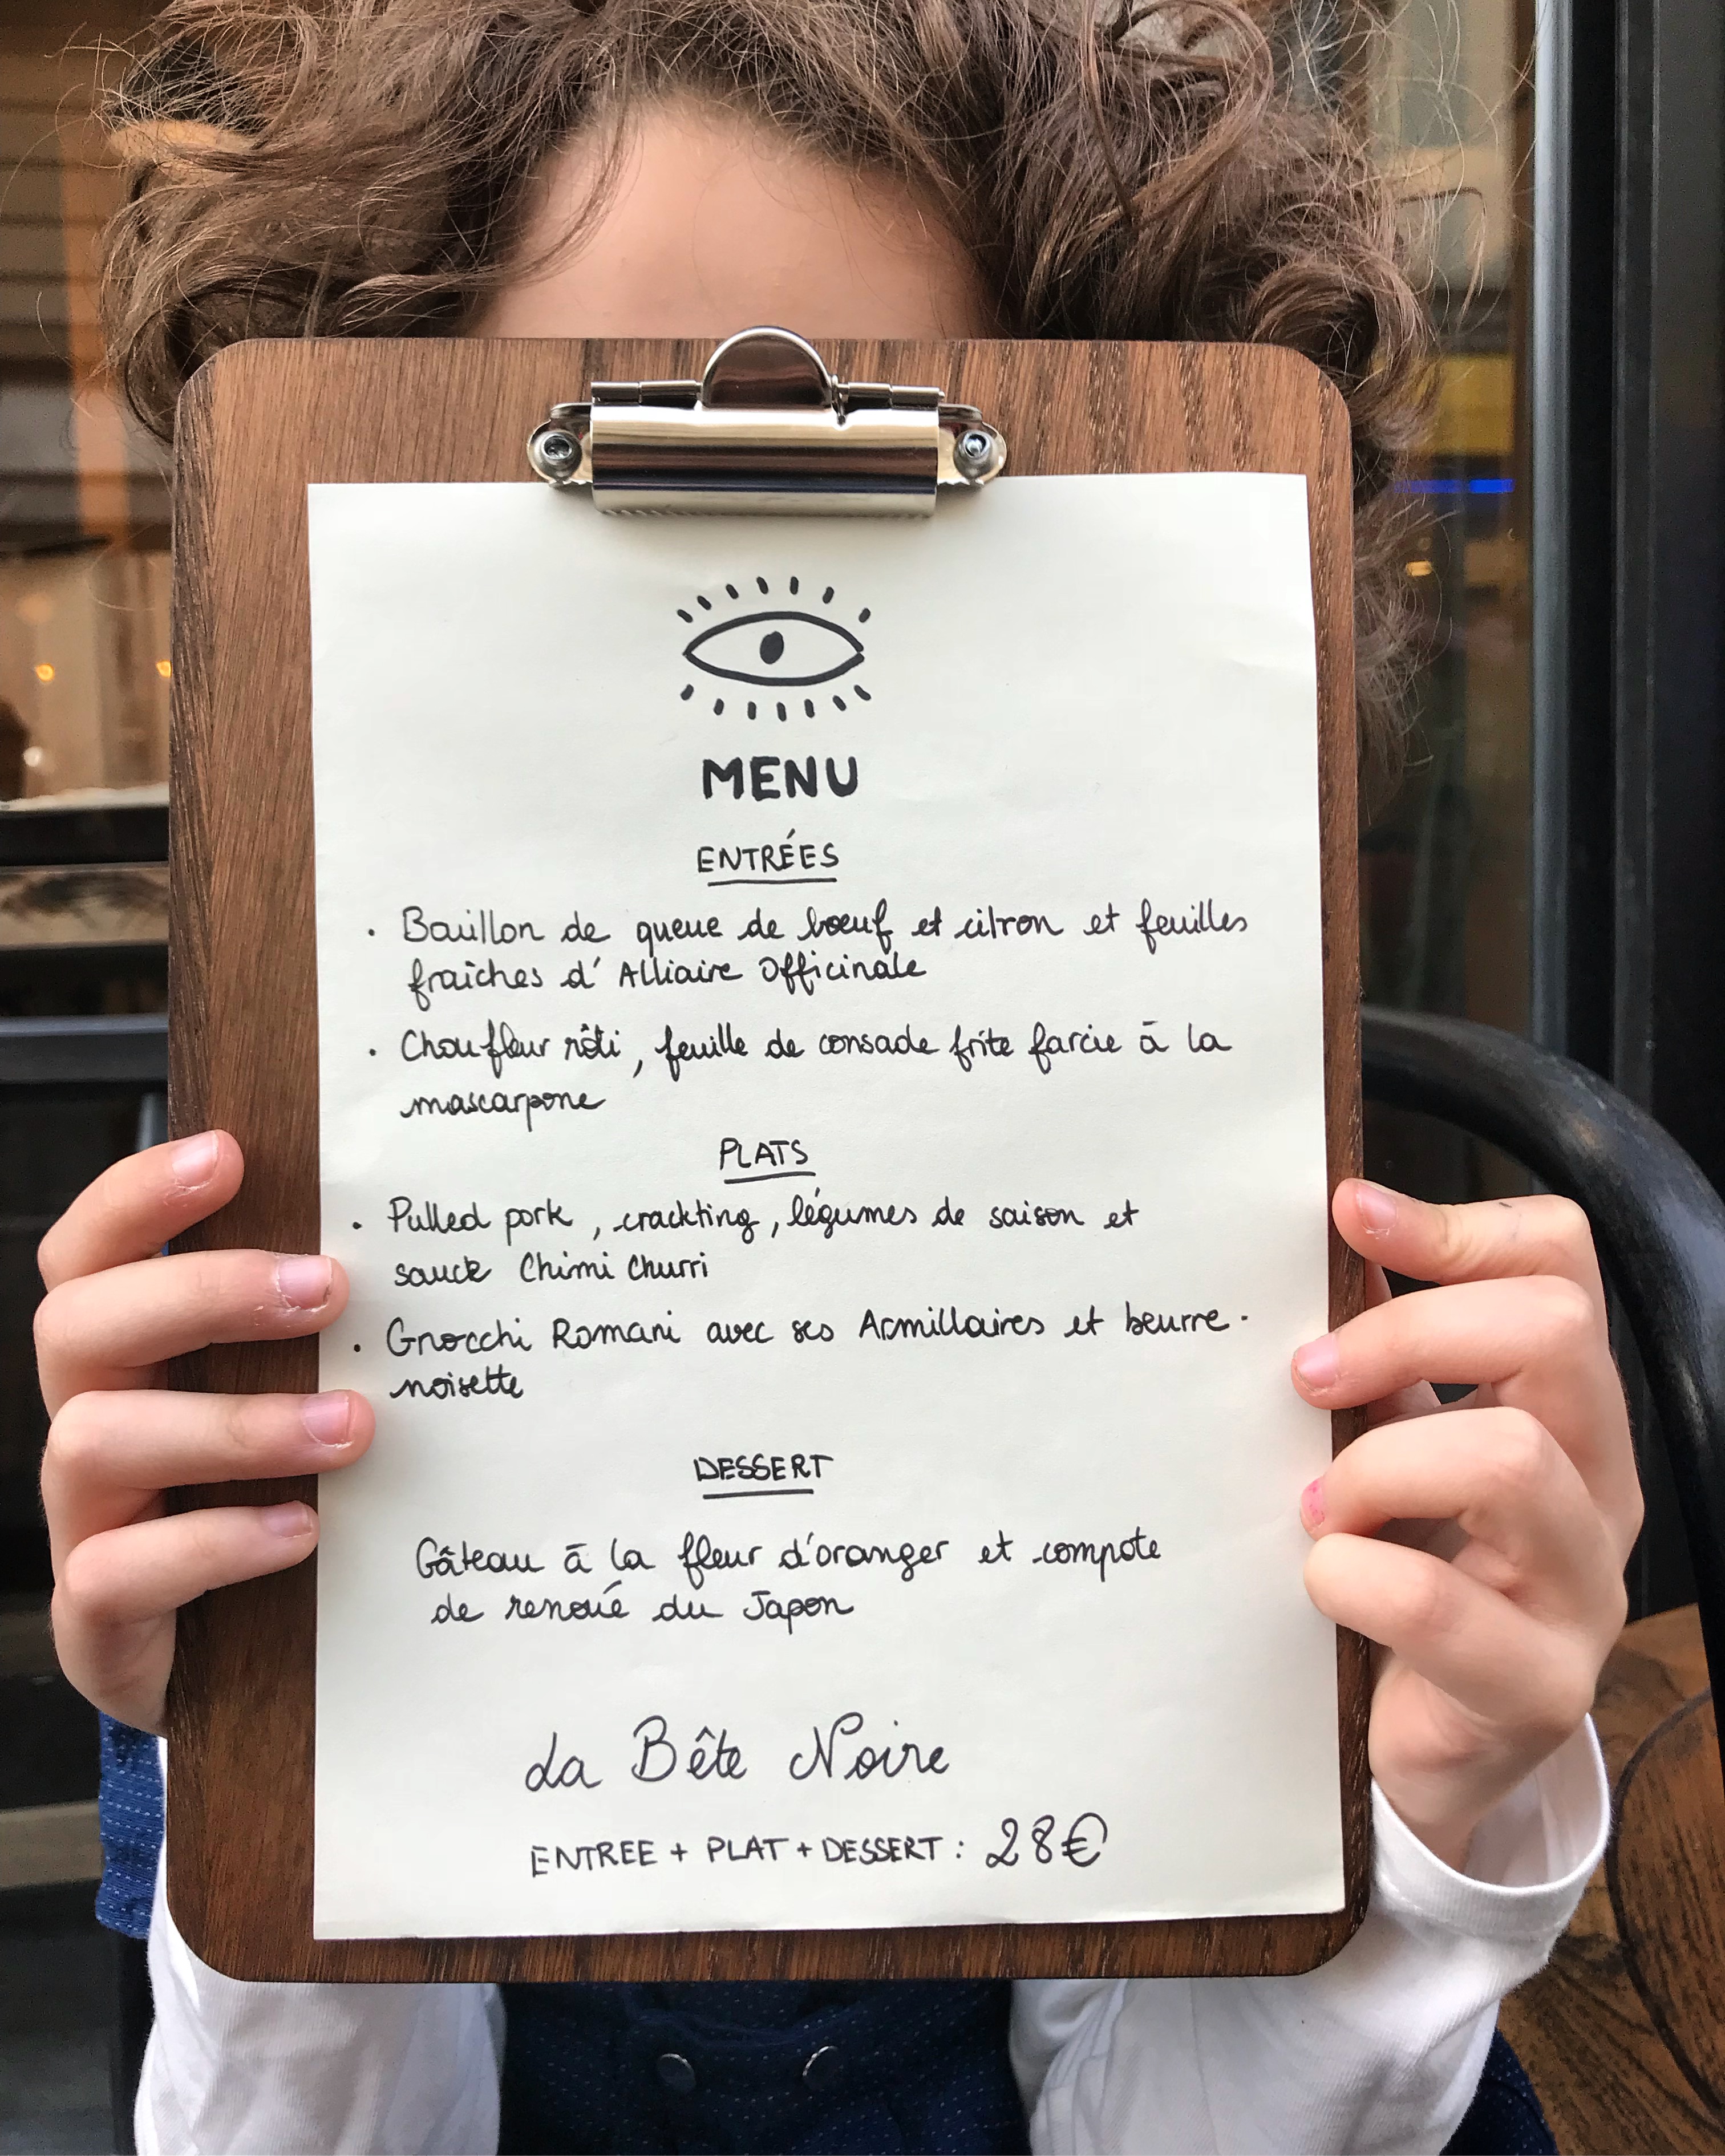 MENU
ENTRÉES
• Bouillon de queue de bœuf et citron et feuilles
fraîches d'Alliaire Officinale
• Chou fleur rôti, feuille de consoude frite farcie à la
mascarpone
PLATS
• Pulled pork, crackting, légumes de saison et
sauce Chimi Churri
• Gnocchi Romani avec ses Armillaires et beurre-
noisette
DESSERT
Gâteau à la fleur d'oranger et compote
de renoué du Japon
La Bête Noire
ENTREE + PLAT + DESSERT : 28€